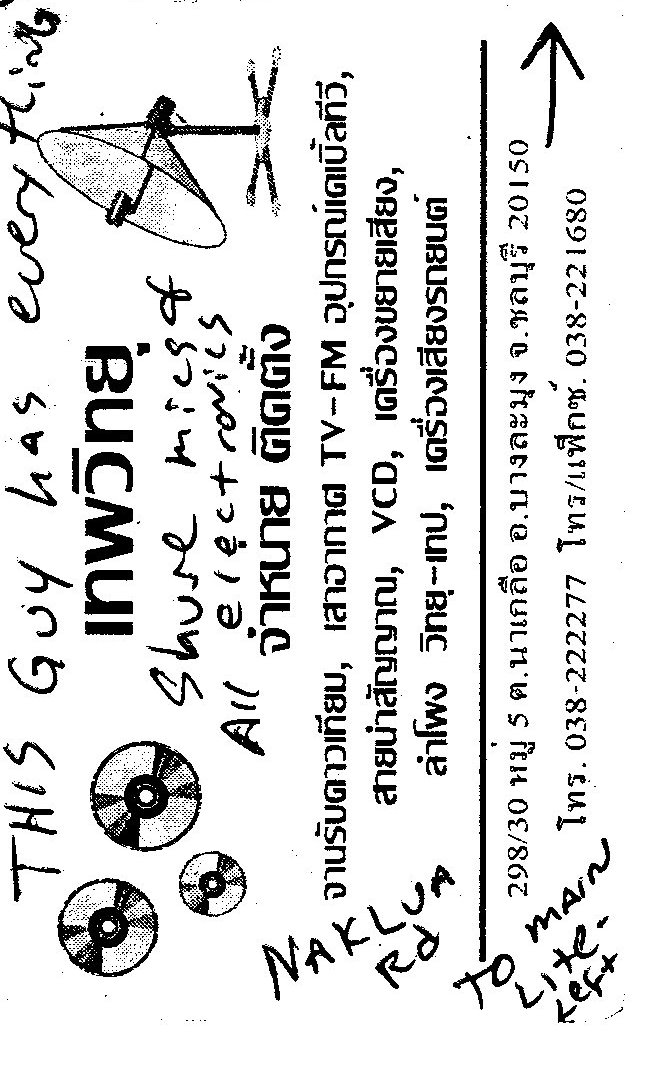 THIS GUY has everything
เทพวิทยุ
Shure mics &
All electronics
จำหนาย ติดตั้ง
จานรับดาวเทียม, เสาอากาศ TV-FM อุปกรณ์เคเบิ้ลทีวี,
สายนำสัญญาณ, VCD, เครื่องขยายเสียง,
ลำโพง วิทยุ-เทป, เครื่องเสียงรถยนต์
NAKLUA
Rd
298/30 หมู่ 5 ต.นาเกลือ อ.บางละมุง จ.ชลบุรี 20150
โทร. 038-222277 โทร/แฟ็กซ์. 038-221680
TO MAIN
Lite.
Left